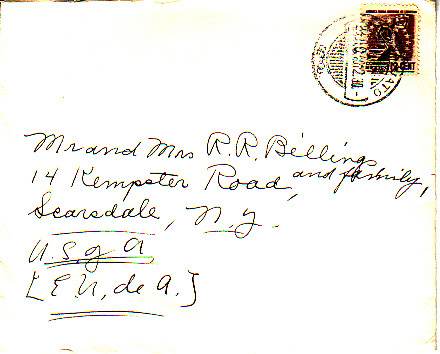 Mr and Mrs R.R. Billings
and family,
14 Kempster Road,
Scarsdale, N.Y.
U.S. of A
[E.U. de A.]